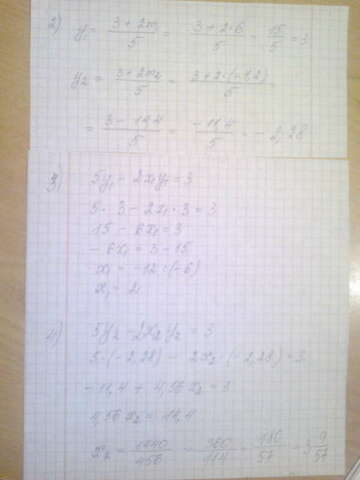 2) y₁ = (3 + 2m₁)/5 = (3 + 2·6)/5 = 15/5 = 3
y₂ = (3 + 2m₂)/5 = (3 + 2·(-7,2))/5 =
= (3 - 14,4)/5 = (-11,4)/5 = - 2,28
3) 5y₁ - 2x₁y₁ = 3
5 · 3 - 2x₁ · 3 = 3
15 - 6x₁ = 3
- 6x₁ = 3 - 15
x₁ = -12 : (-6)
x₁ = 2
4) 5y₂ - 2x₂y₂ = 3
5·(-2,28) - 2x₂ · (-2,28) = 3
- 11,4 + 4,56x₂ = 3
4,56x₂ = 14,4
x₂ = 1440/456 = 360/114 = 180/57 = 3 9/57